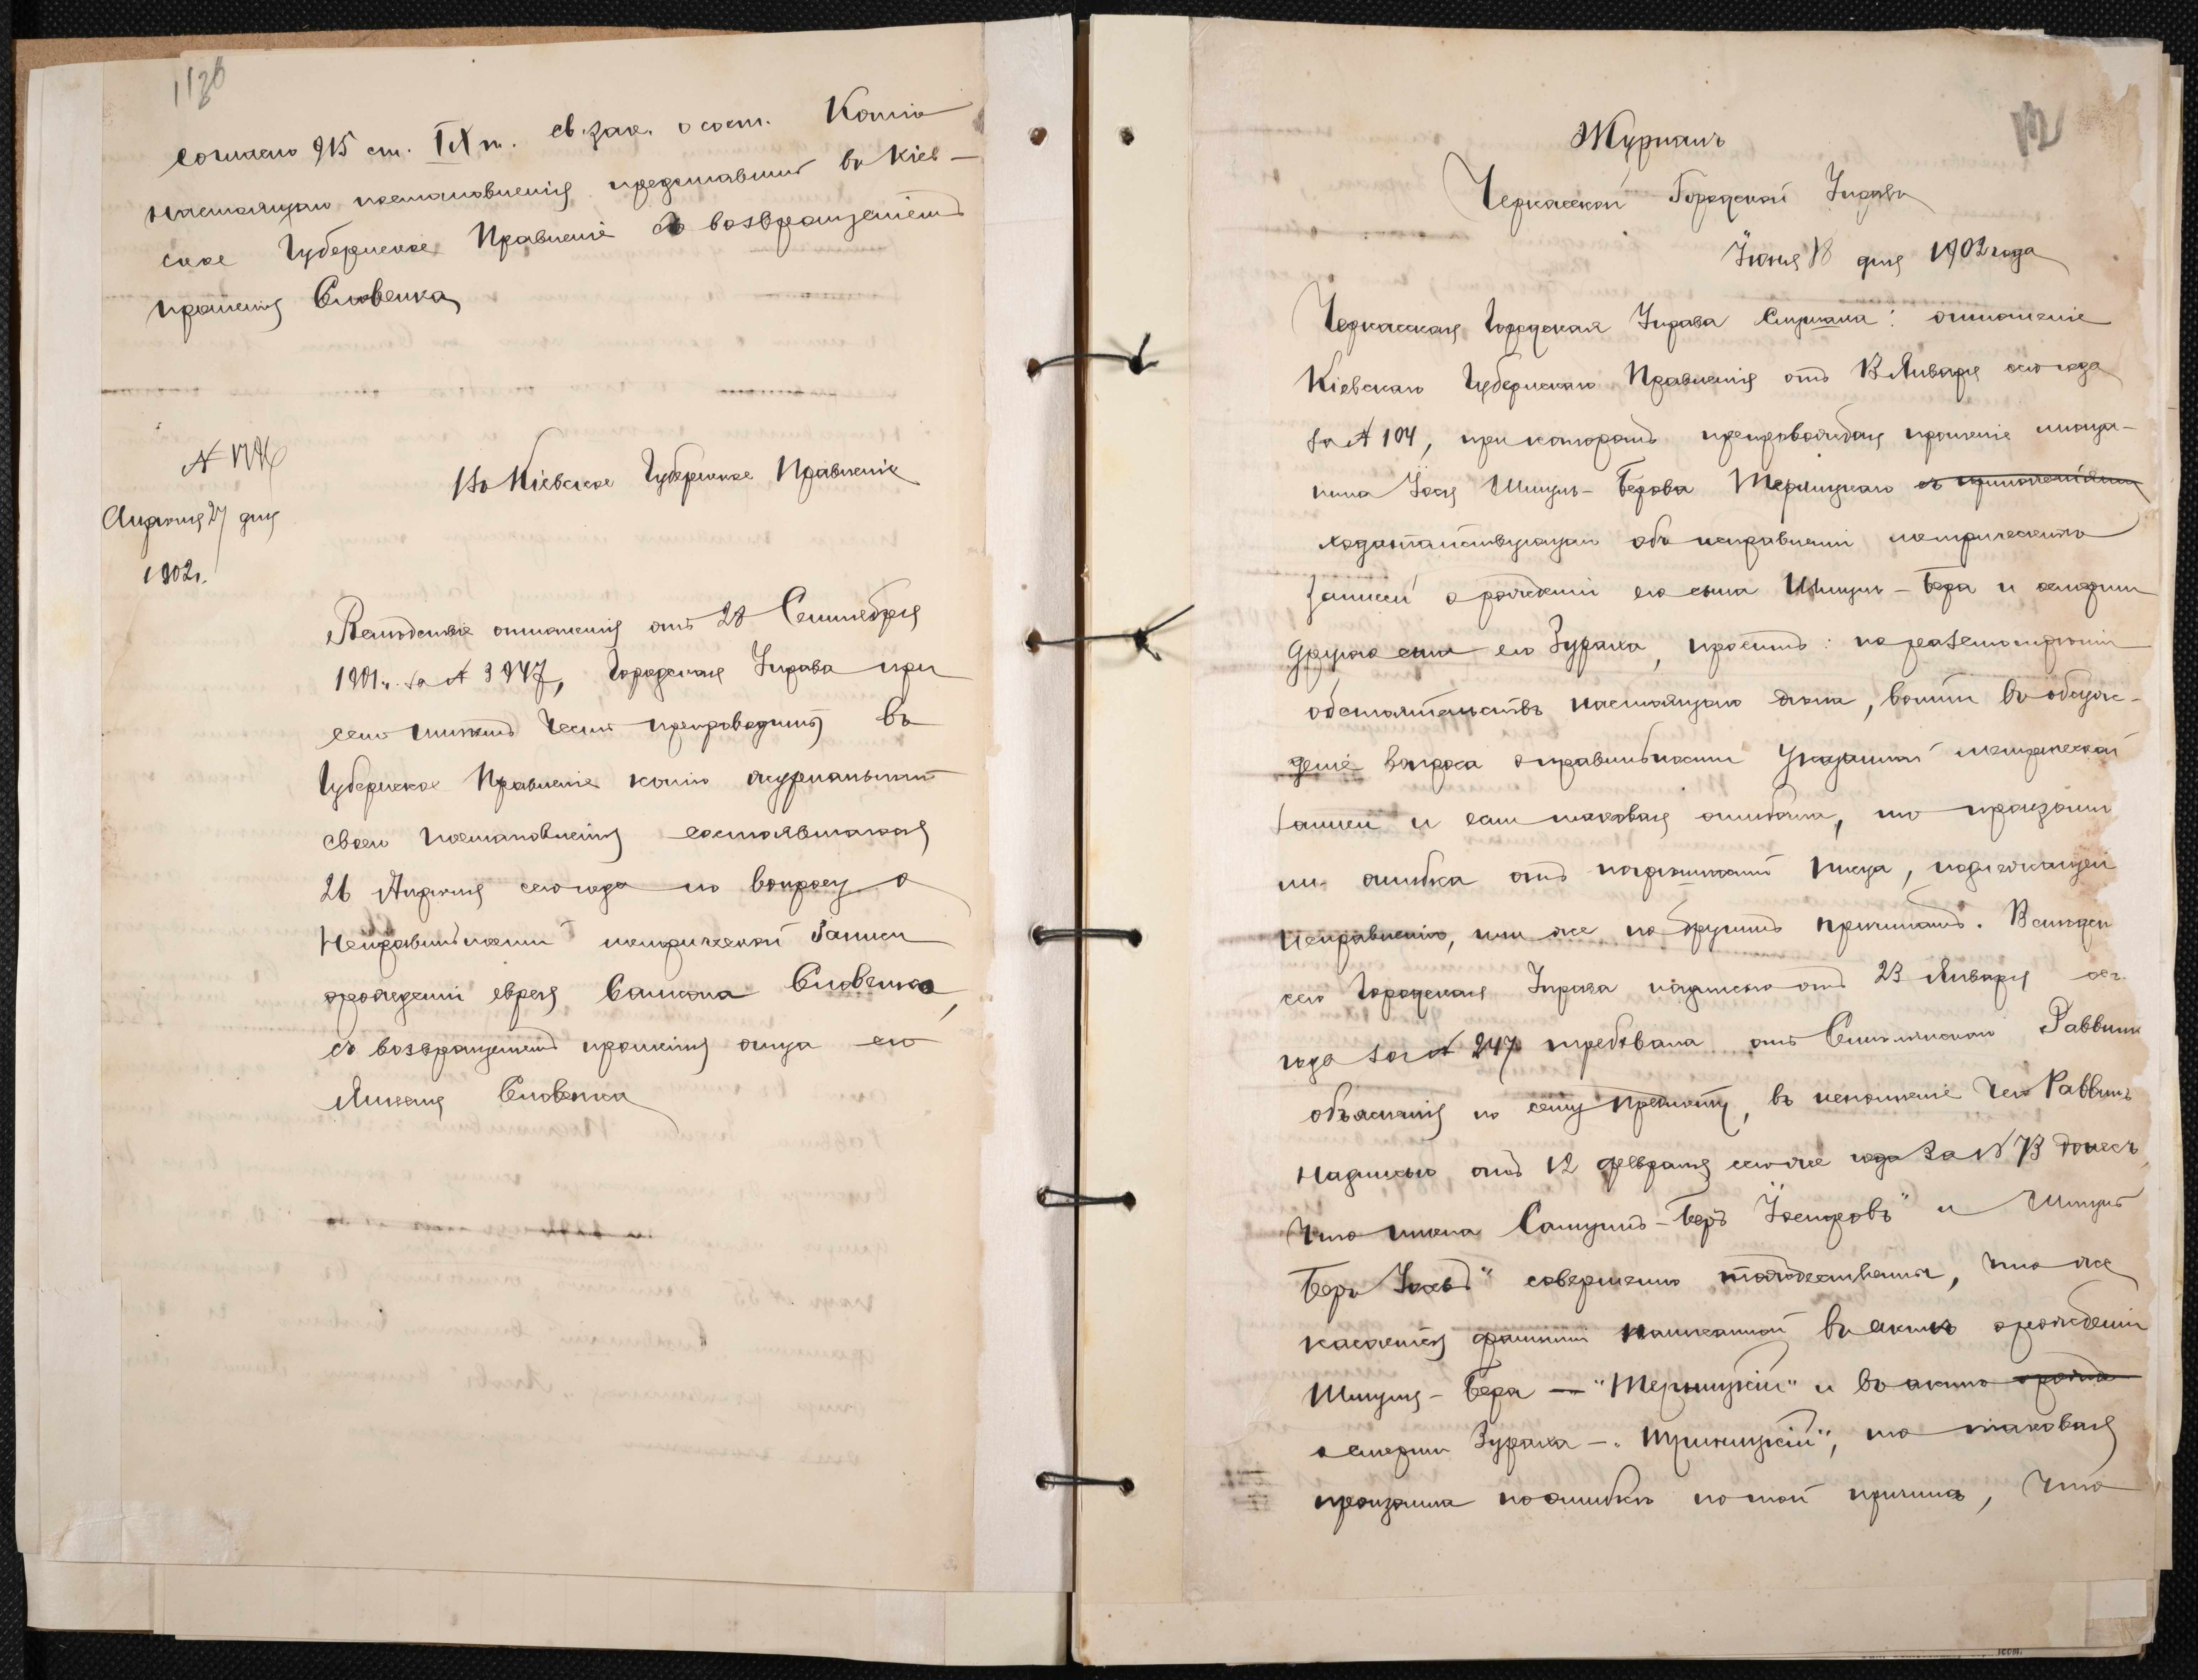 согласно 915 ст. IX т. св. зак. о сост. Копію
настоящаго постановленія представить въ Кіев-
ское Губернское Правленіе съ возвращеніемъ
прошенія Словенка
Апрѣля 27 дня
1902 г.
Въ Кіевское Губернское Правленіе
Вслѣдствіе отношенія отъ 28 Сентября
1901 г. за № 3947, Городская Управа при
семъ имѣетъ честь препроводить въ
Губернское Правленіе копію журнальнаго
своего постановленія состоявшагося
26 Апрѣля сего года по вопросу о
неправильности метрической записи
о рожденіи еврея Словенка,
съ возвращеніемъ прошенія отца его
Словенка
112
Журналъ
Черкасской Городской Управы
Іюня 18 дня 1902 года
Черкасская Городская Управа слушала: отношеніе
Кіевскаго Губернскаго Правленія отъ 13 Января сего года
за № 104, при которомъ препровождая прошеніе мѣща-
нина Іося Шмуль-Берова Терницкаго
ходатайствующаго объ исправленіи метрическихъ
записей о рожденіи его сына Шмуль-Бера и смерти
другаго сына его Зураха, проситъ: по разсмотрѣніи
обстоятельствъ настоящаго дѣла, войти въ обсуж-
деніе вопроса о правильности указанной метрической
записи и если таковая ошибочна, то произошла
ли ошибка отъ погрѣшностей писца, подлежащей
исправленію, или же по другимъ причинамъ. Вслѣдст.
сего Городская Управа надписью отъ 23 Января сег.
года за № 247 требовала отъ Смѣлянскаго Раввина
объясненія по сему предмету, въ исполненіе чего Раввинъ
надписью отъ 12 февраля сего же года за № 73 донесъ,
что имена Самуилъ-Беръ Іосифовъ" и Шмуль
Беръ Іосевъ" совершенно тождественны, что же
касается фамиліи написанной въ актѣ о рожденіи
Шмуля-Бера — "Терницкій" и въ актѣ
о смерти Зураха — "Триницкій", то таковая
произошла по ошибкѣ по той причинѣ, что